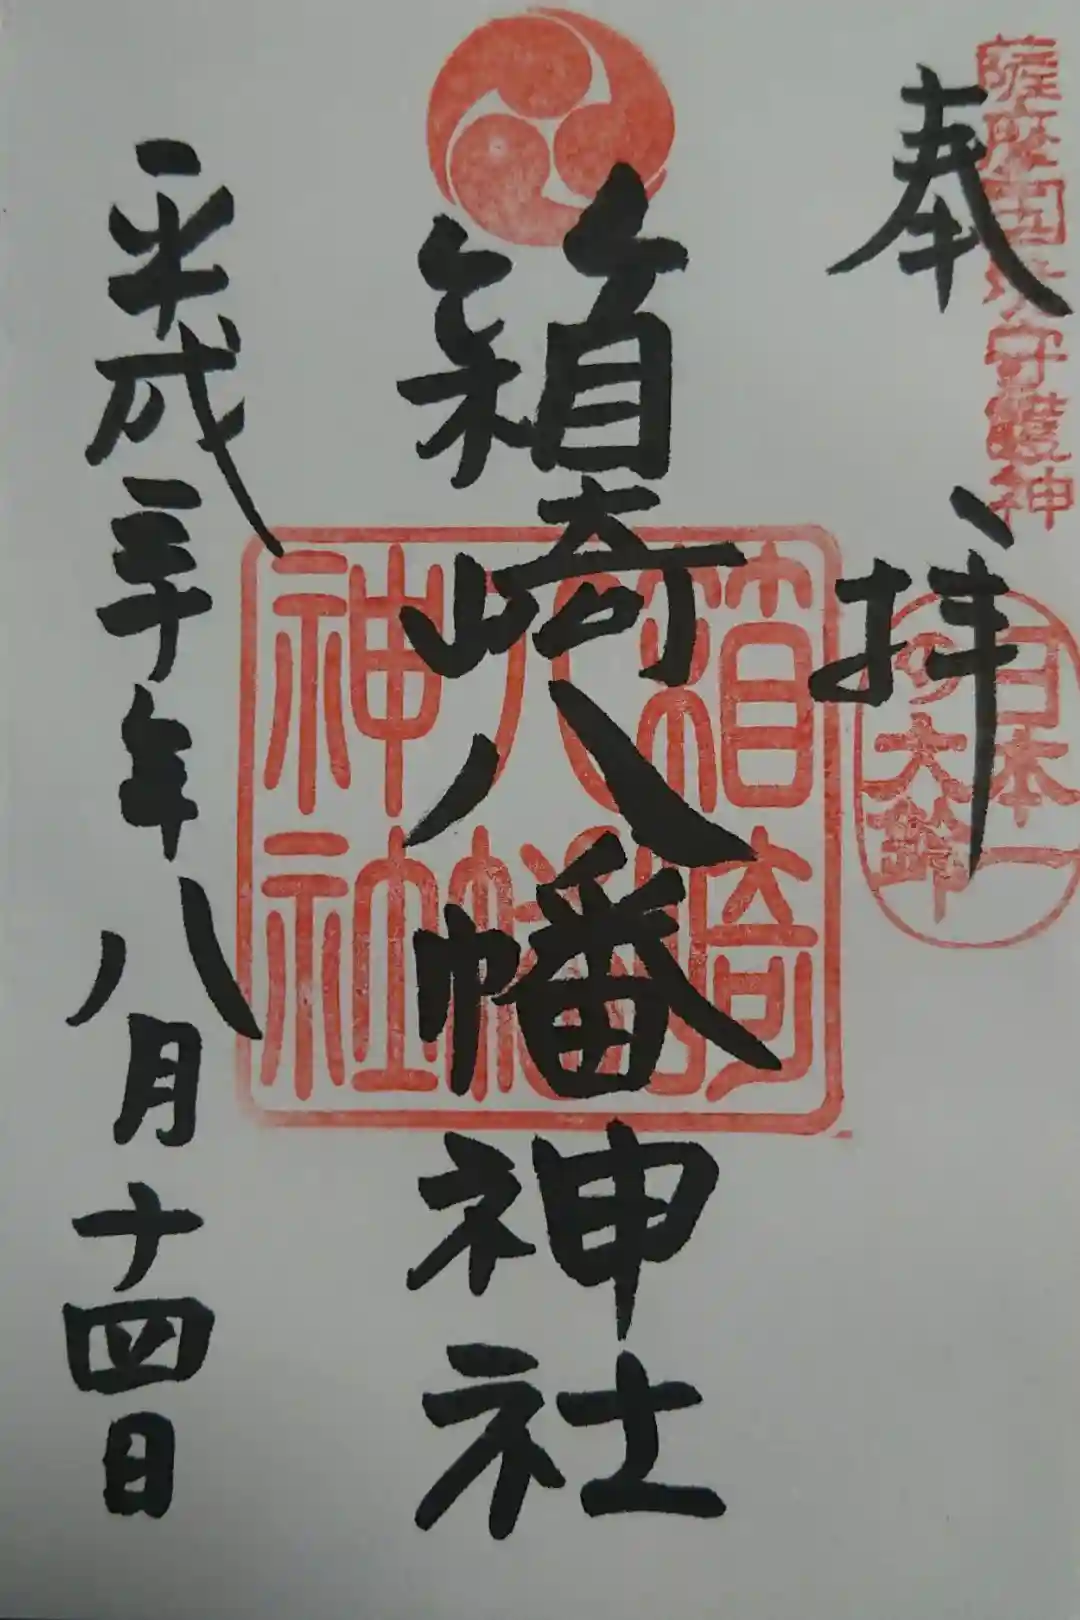 薩摩国出水守護神
奉拝
日本一
の大鈴
箱崎八幡神社
箱崎
八幡
神社
平成三十年八月十四日